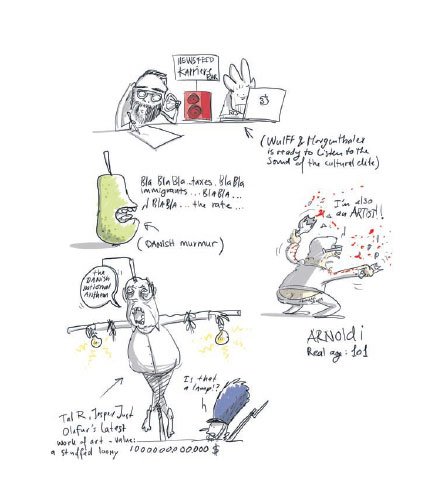 NEWSFEED
Karriere
BAR
$
(Wulff & Morgenthaler
is ready to listen to the
sound of the cultural elite)
Bla Bla Bla..taxes..Bla Bla
immigrants...Bla Bla...
Bla Bla... the rate...
(DANISH murmur)
I'm also
an ARTIST!!
ARNOLDi
Real age: 101
the
DANISH
national
Anthem
Is that
a lamp!?
Tal R, Jesper Just
Olafur's latest
work of art - value:
a stuffed loony
1000000,00,00000 $